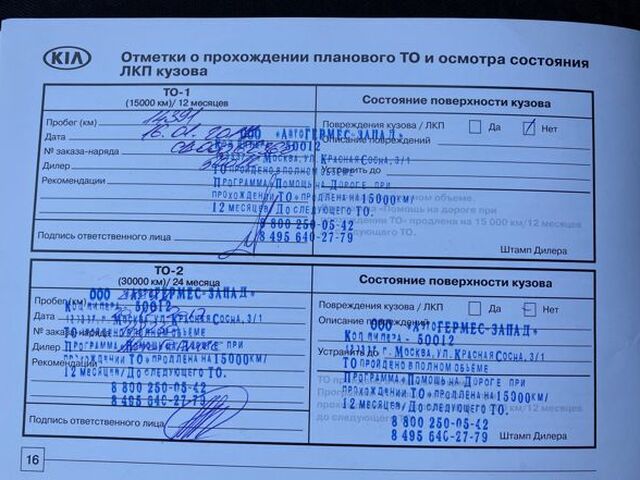 KIA
Отметки о прохождении планового ТО и осмотра состояния
ЛКП кузова
ТО-1
(15000 км)/ 12 месяцев
Состояние поверхности кузова
Пробег (км) 14391
Повреждения кузова / ЛКП Да Нет
Дата 16.01.20
Описание повреждений
№ заказа-наряда
Дилер
Устранить до
Рекомендации
ООО «АвтоГЕРМЕС-ЗАПАД»
50012
г. Москва, ул. Красная Сосна, 3/1
ТО пройдено в полном объёме
Программа «Помощь на Дороге при
прохождении ТО» продлена на 15000км/
12 месяцев/До следующего ТО.
8 800 250-05-42
8 495 640-27-79
Подпись ответственного лица
Штамп Дилера
ТО-2
(30000 км)/ 24 месяца
Состояние поверхности кузова
Пробег (км)
Повреждения кузова / ЛКП Да Нет
Дата
Описание повреждений
№ заказа-наряда
Дилер
Устранить до
Рекомендации
ООО «АвтоГЕРМЕС-ЗАПАД»
Код дилера - 50012
г. Москва, ул. Красная Сосна, 3/1
ТО пройдено в полном объёме
Программа «Помощь на Дороге при
прохождении ТО» продлена на 15000км/
12 месяцев/До следующего ТО.
8 800 250-05-42
8 495 640-27-79
ООО «АвтоГЕРМЕС-ЗАПАД»
Код дилера - 50012
г. Москва, ул. Красная Сосна, 3/1
ТО пройдено в полном объёме
Программа «Помощь на Дороге при
прохождении ТО» продлена на 15000км/
12 месяцев/До следующего ТО.
8 800 250-05-42
8 495 640-27-79
Подпись ответственного лица
Штамп Дилера
16